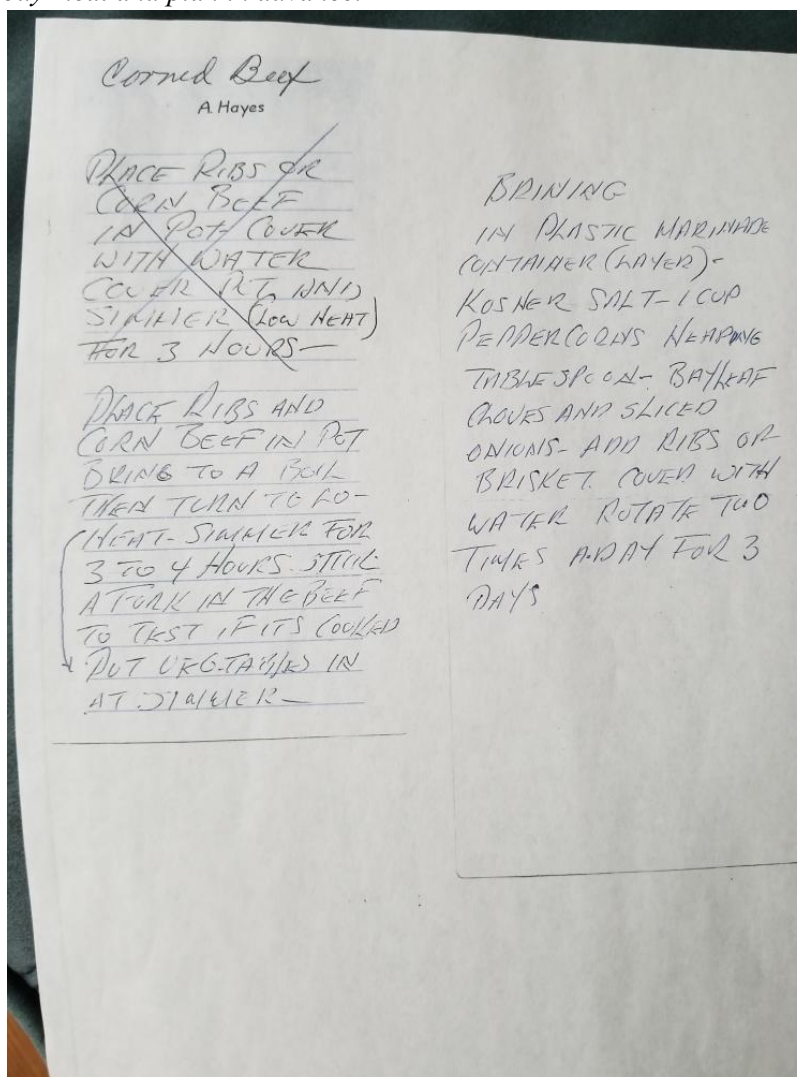 Corned Beef
A. Hayes
PLACE RIBS OR
CORN BEEF
IN POT COVER
WITH WATER
COVER PT. AND
SIMMER (LOW HEAT)
FOR 3 HOURS—
PLACE RIBS AND
CORN BEEF IN POT
BRING TO A BOIL
THEN TURN TO LO-
HEAT- SIMMER FOR
3 TO 4 HOURS. STICK
A FORK IN THE BEEF
TO TEST IF ITS COOKED
PUT VEG.TABLES IN
AT SIMMER—
BRINING
IN PLASTIC MARINADE
CONTAINER (LAYER)-
KOSHER SALT- 1 CUP
PEPPERCORNS HEAPING
TABLESPOON- BAYLEAF
CLOVES AND SLICED
ONIONS- ADD RIBS OR
BRISKET. COVER WITH
WATER ROTATE TWO
TIMES A.DAY FOR 3
DAYS